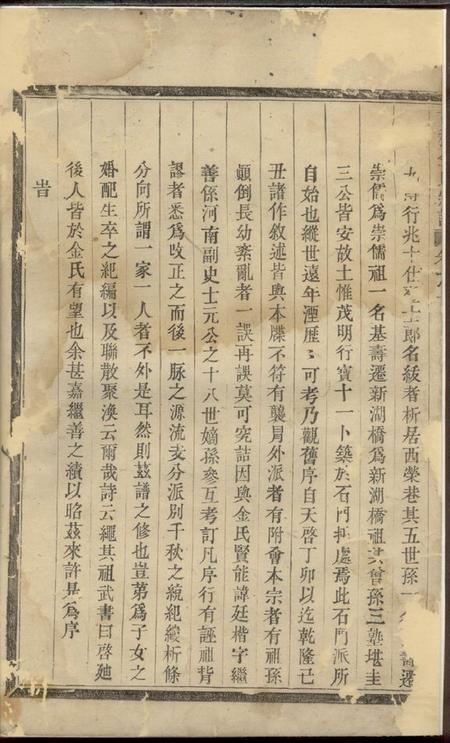 行兆十仕
郎名綏者析居西榮巷其五世孫一
遷
崇儒爲崇儒祖一名基壽遷新湖橋爲新湖橋祖其曾孫三塾堪圭
三公皆安故土惟茂明行寶十一卜築於石門
處焉此石門派所
自始也縱世遠年湮歷〻可考乃觀舊序自天啓丁卯以迄乾隆己
丑諸作敘述皆與本牒不符有襲冐外派者有附會本宗者有祖孫
顚倒長幼紊亂者一誤再誤莫可究詰因與金氏賢能諱廷楷字繼
善係河南副史士元公之十八世嫡孫參互考訂凡序行有誣祖背
謬者悉爲攺正之而後一脉之源流支分派别千秋之統紀縷析條
分向所謂一家一人者不外是耳然則茲譜之修也豈第爲子女之
婚配生卒之紀編以及聯散聚渙云爾哉詩云繩其祖武書曰啓廸
後人皆於金氏有望也余甚嘉繼善之績以昭茲來許是爲序
旹